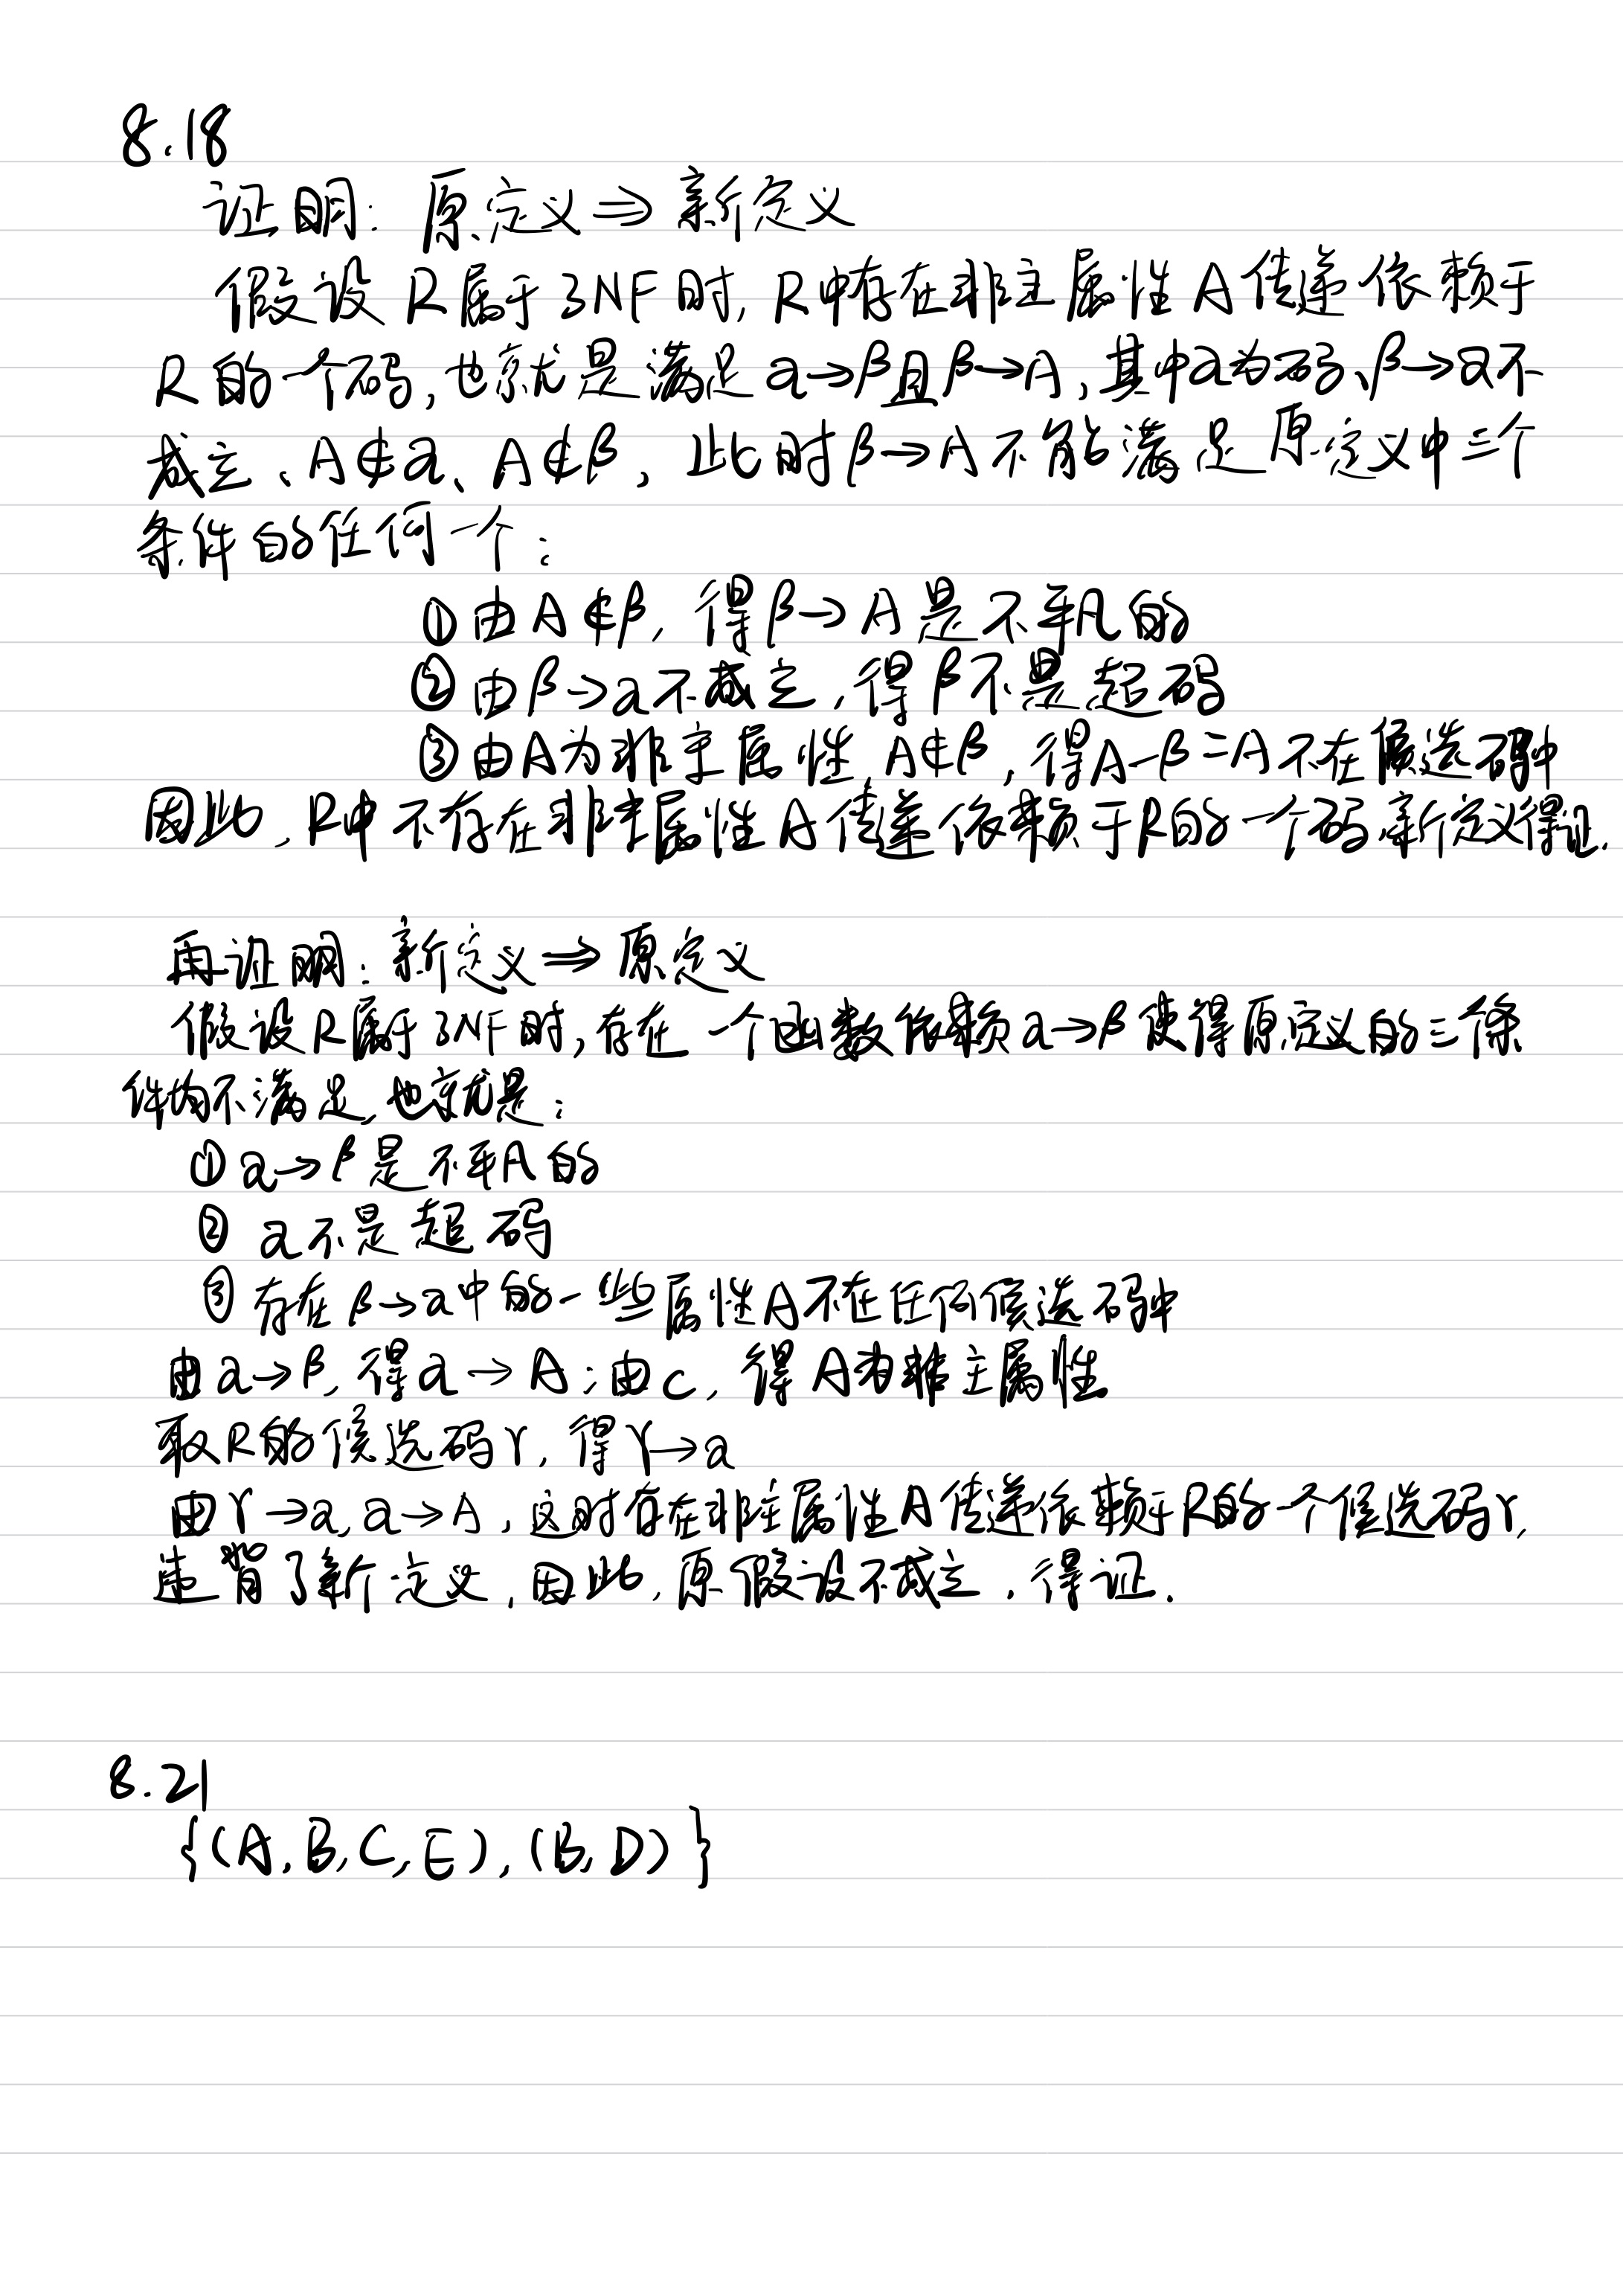 8.18
证明：原定义⇒新定义
假设R属于3NF时，R中存在非主属性A传递依赖于
R的一个码，也就是满足a→β且β→A，其中a为码、β→a不
成立、A∉a、A∉β，此时β→A不能满足原定义中三个
条件的任何一个：
①由A∉β，得β→A是不平凡的
②由β→a不成立，得β不是超码
③由A为非主属性，A∉β，得A-β=A不在候选码中
因此，R中不存在非主属性A传递依赖于R的一个码，新定义得证.
再证明：新定义⇒原定义
假设R属于3NF时，存在一个函数依赖a→β使得原定义的三条
件均不满足，也就是：
①a→β是不平凡的
②a不是超码
③存在β→a中的一些属性A不在任何候选码中
由a→β，得a→A；由c，得A为非主属性
取R的候选码γ，得γ→a
由γ→a，a→A，这时存在非主属性A传递依赖于R的一个候选码γ，
违背了新定义，因此，原假设不成立，得证.
8.21
{(A,B,C,E),(B,D)}